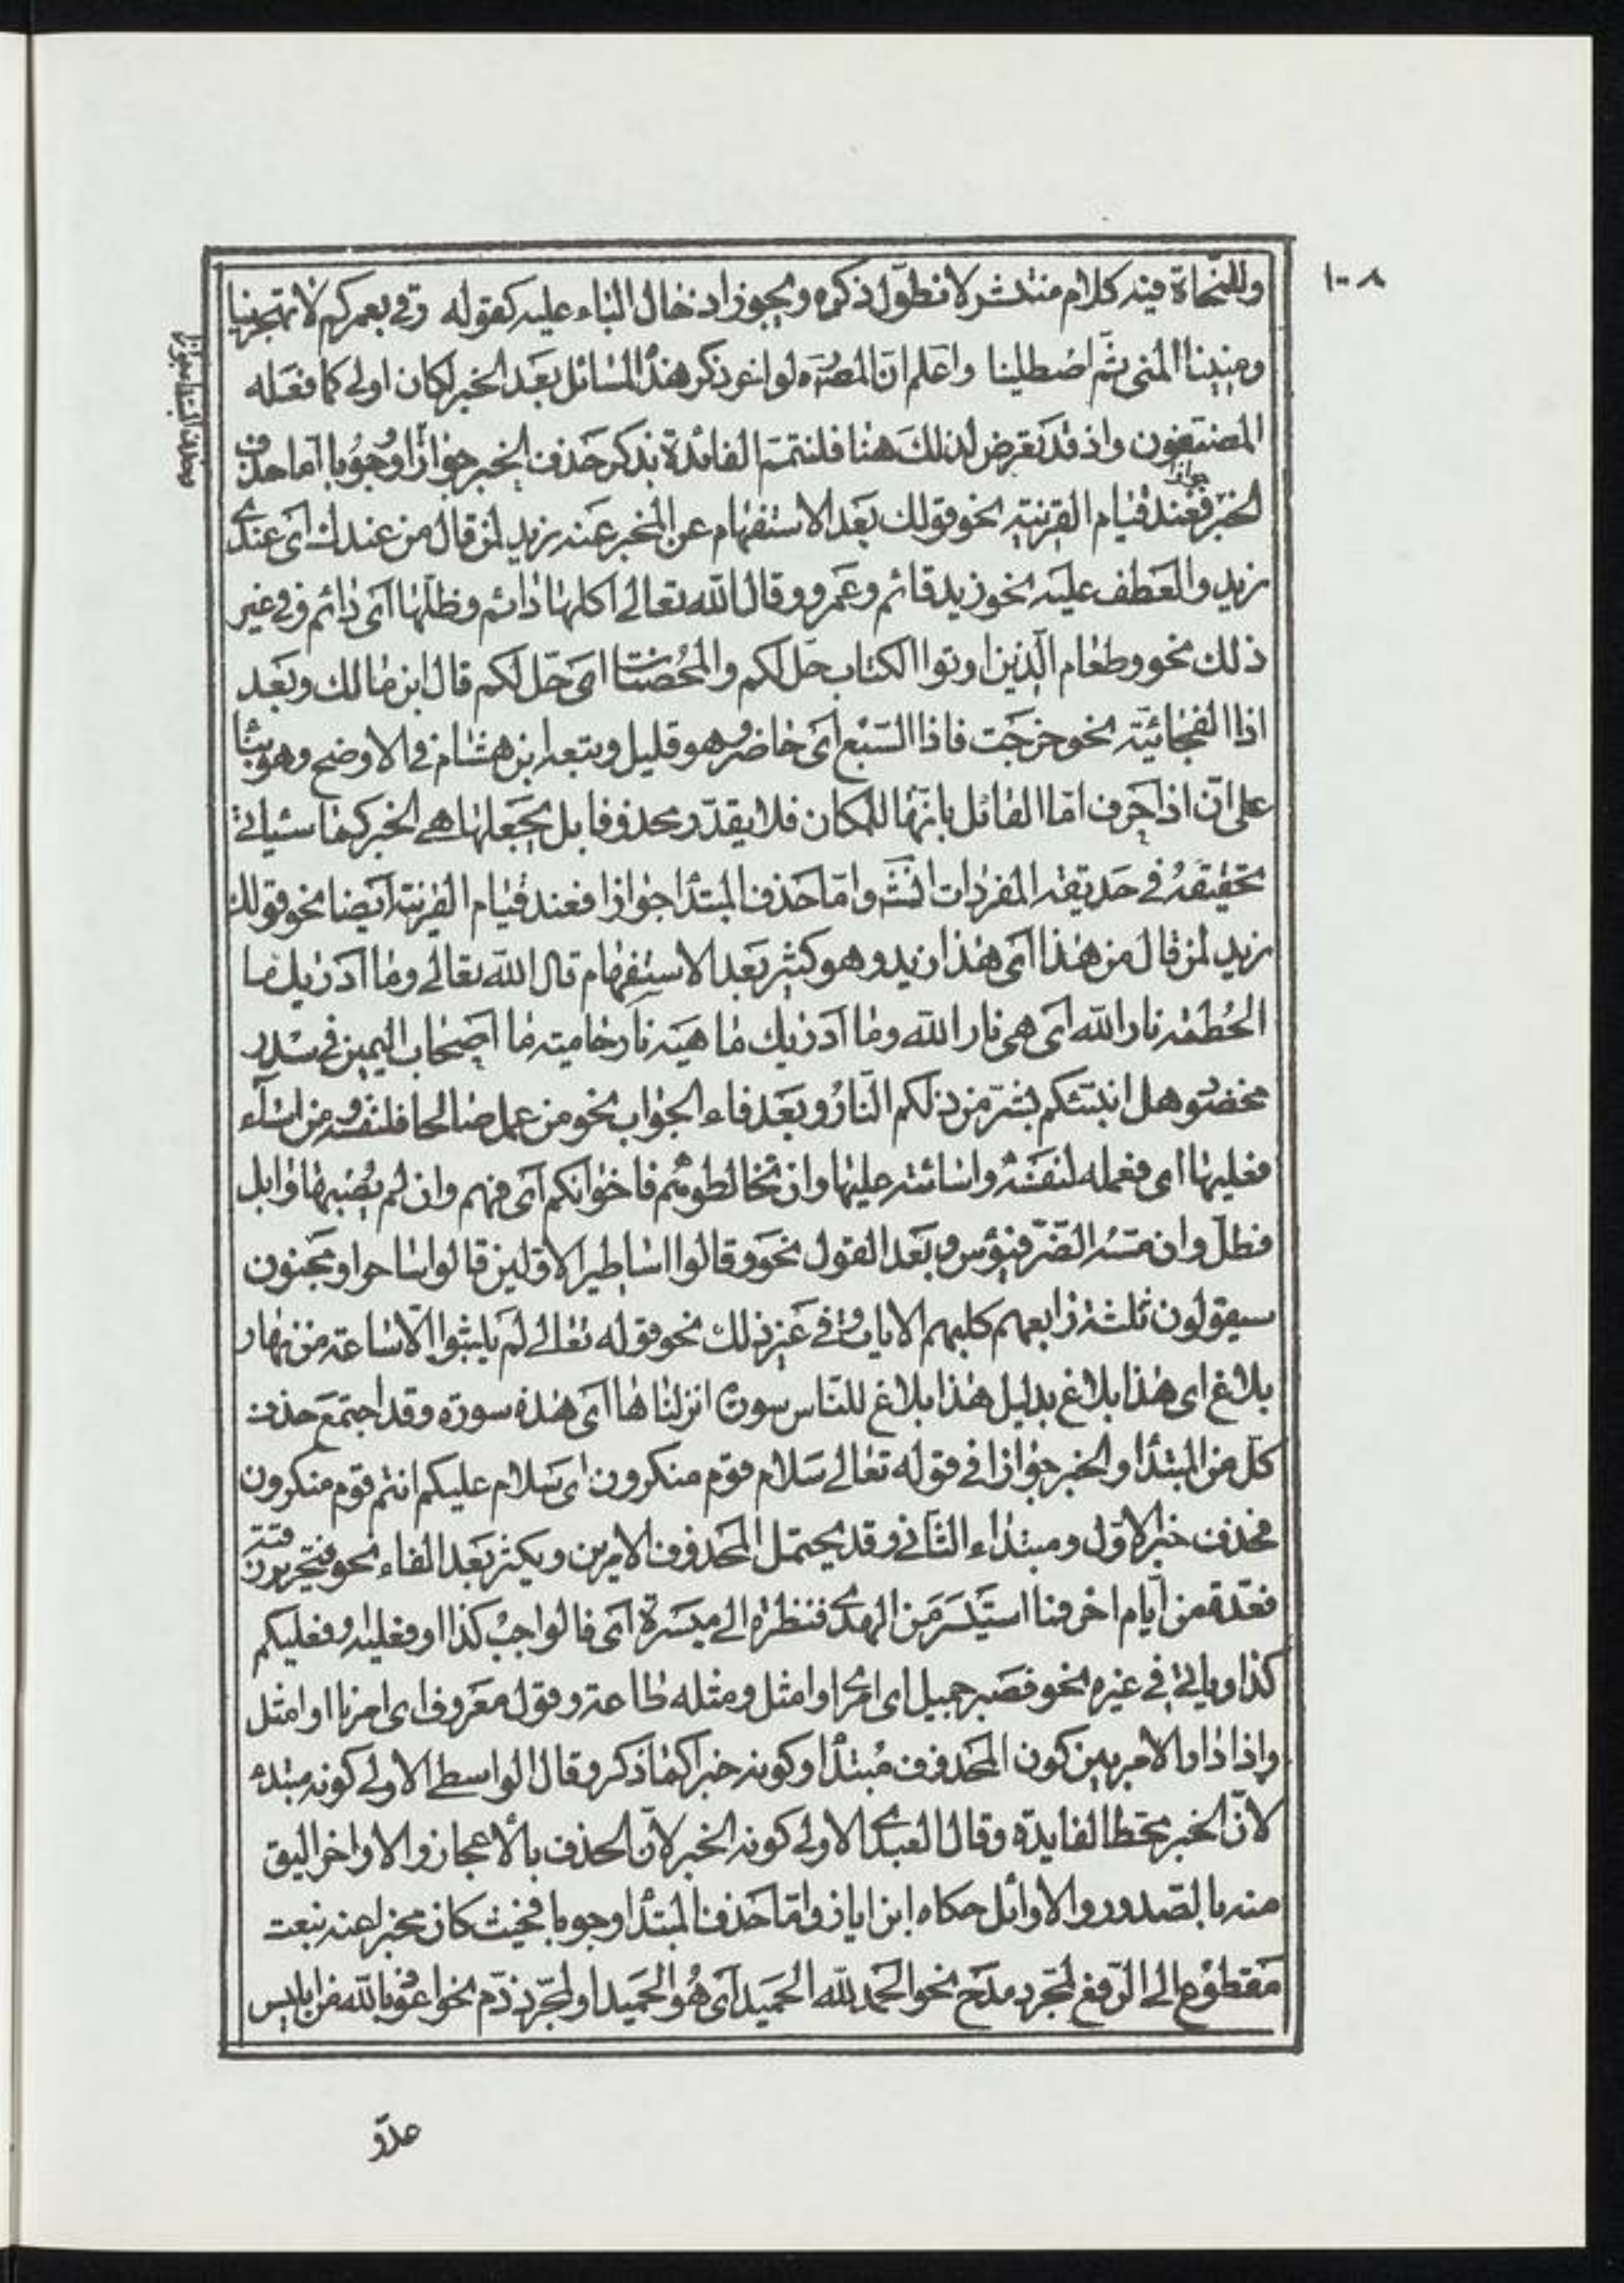 ١٠٨
وللنحاة فيه كلام منتشر لا نطول ذكره ويجوز ادخال الباء عليه كقوله رقي بعمركم لا تهجرينا
ومنينا المنى ثم امطلينا واعلم ان المصره لو اخر ذكر هذه المسائل بعد الخبر لكان اولى كما فعله
المصنفون واذ قد تعرض لذلك هنا فلنتمم الفائدة بذكر حذف الخبر جوازا ووجوبا اما حذف
الخبر جوازا فعند قيام القرينة نحو قولك بعد الاستفهام عن المخبر عنه زيد لمن قال من عندك اى عندى
زيد والعطف عليه نحو زيد قائم وعمرو وقال الله تعالى اكلها دائم وظلها اى دائم وفى غير
ذلك نحو وطعام الذين اوتوا الكتاب حل لكم والمحصنات اى حل لكم قال ابن مالك وبعد
اذا الفجائية نحو خرجت فاذا السبع اى حاضر وهو قليل وتبعه ابن هشام فى الاوضح وهو بناء
على ان اذا حرف اما القائل بانها للمكان فلا يقدر محذوفا بل يجعلها هى الخبر كما سيأتى
تحقيقه فى حديقة المفردات انش واما حذف المبتدا جوازا فعند قيام القرينة ايضا نحو قولك
زيد لمن قال من هذا اى هذا زيد وهو كثير بعد الاستفهام قال الله تعالى وما ادريك ما
الحطمة نار الله اى هى نار الله وما ادريك ما هيه نار حامية ما اصحاب اليمين فى سدر
مخضود هل انبئكم بشر من ذلكم النار وبعد فاء الجواب نحو من عمل صالحا فلنفسه ومن اساء
فعليها اى فعمله لنفسه واسائته عليها وان تخالطوهم فاخوانكم اى فهم وان لم يصبها وابل
فطل وان مسه الضر فيؤس وبعد القول نحو وقالوا اساطير الاولين قالوا ساحر او مجنون
سيقولون ثلثة رابعهم كلبهم الايات وفى غير ذلك نحو قوله تعالى لم يلبثوا الا ساعة من نهار
بلاغ اى هذا بلاغ بدليل هذا بلاغ للناس سورة انزلناها اى هذه سورة وقد اجتمع حذف
كل من المبتدا والخبر جوازا فى قوله تعالى سلام قوم منكرون اى سلام عليكم انتم قوم منكرون
فحذف خبر الاول ومبتداء الثانى وقد يحتمل المحذوف الامرين ويكثر بعد الفاء نحو فتحرير رقبة
فعدة من ايام اخر فما استيسر من الهدى فنظرة الى ميسرة اى فالواجب كذا او فعليه او فعليكم
كذا وياتى فى غيره نحو فصبر جميل اى امرى او امثل ومثله طاعة وقول معروف اى امرنا او امثل
واذا دار الامر بين كون المحذوف مبتدا وكونه خبرا كما ذكر وقال الواسطى الاولى كونه مبتدء
لان الخبر محط الفايدة وقال العبدى الاولى كونه الخبر لان الحذف بالاعجاز والاواخر اليق
منه بالصدور والاوائل حكاه ابن اياز واما حذف المبتدا وجوبا فحيث كان مخبرا عنه بنعت
مقطوع الى الرفع لمجرد مدح نحو الحمد لله الحميد اى هو الحميد او لمجرد ذم نحو اعوذ بالله من ابليس
عدو